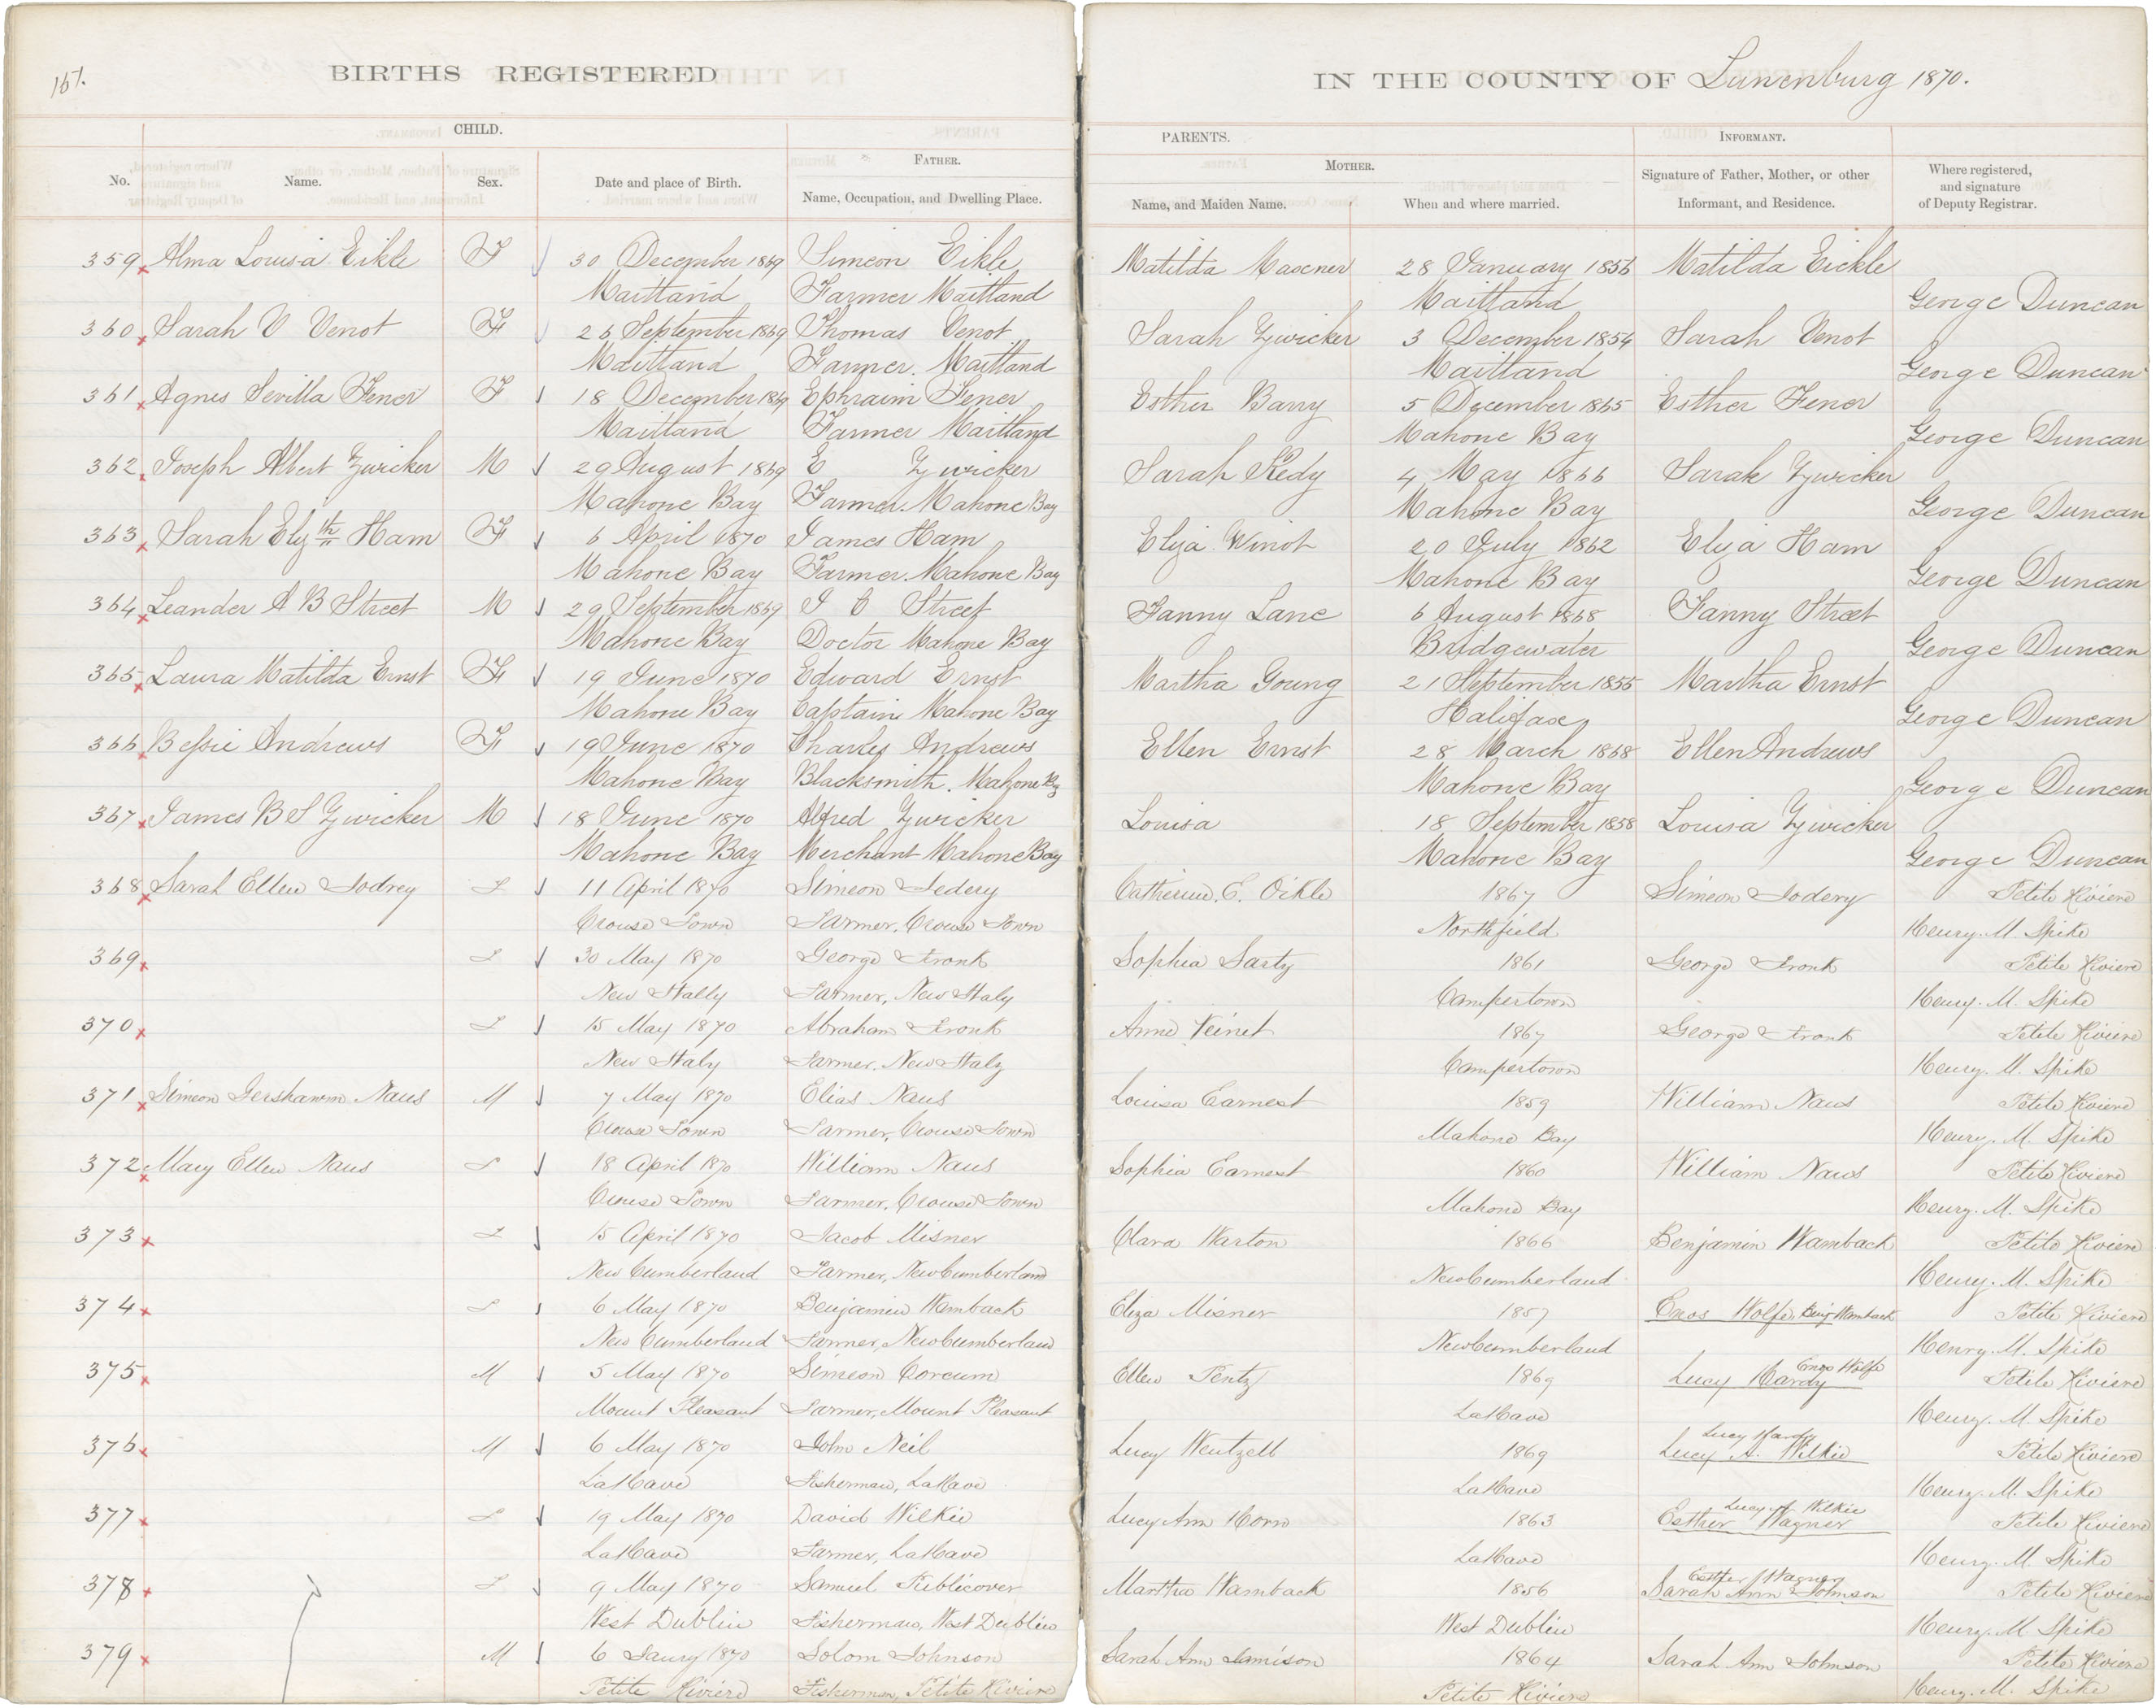 157.
BIRTHS REGISTERED
IN THE COUNTY OF Lunenburg 1870.
CHILD.
PARENTS.
INFORMANT.
No. Name. Sex. Date and place of Birth.
FATHER.
Name, Occupation, and Dwelling Place.
MOTHER.
Name, and Maiden Name. When and where married.
Signature of Father, Mother, or other
Informant, and Residence.
Where registered,
and signature
of Deputy Registrar.
359 Alma Louisa Eikle F 30 December 1869 Simeon Eikle Matilda Masener 28 January 1856 Matilda Eickle
Maitland Farmer Maitland Maitland George Duncan
360 Sarah V Venot F 26 September 1869 Thomas Venot Sarah Zwicker 3 December 1854 Sarah Venot
Maitland Farmer. Maitland Maitland George Duncan
361 Agnes Sevilla Fener F 18 December 1869 Ephraim Fener Esther Barry 5 December 1865 Esther Fener
Maitland Farmer Maitland Mahone Bay George Duncan
362 Joseph Albert Zwicker M 29 August 1869 E Zwicker Sarah Kedy 4 May 1866 Sarah Zwicker
Mahone Bay Farmer. Mahone Bay Mahone Bay George Duncan
363 Sarah Elyth Ham F 6 April 1870 James Ham Eliza Winot 20 July 1862 Eliza Ham
Mahone Bay Farmer. Mahone Bay Mahone Bay George Duncan
364 Leander A B Street M 29 September 1869 J C Street Fanny Lane 6 August 1868 Fanny Street
Mahone Bay Doctor Mahone Bay Bridgewater George Duncan
365 Laura Matilda Ernst F 19 June 1870 Edward Ernst Martha Young 21 September 1855 Martha Ernst
Mahone Bay Captain Mahone Bay Halifax George Duncan
366 Bessie Andrews F 19 June 1870 Charles Andrews Ellen Ernst 28 March 1868 Ellen Andrews
Mahone Bay Blacksmith. Mahone Bay Mahone Bay George Duncan
367 James B S Zwicker M 18 June 1870 Alfred Zwicker Louisa 18 September 1858 Louisa Zwicker
Mahone Bay Merchant Mahone Bay Mahone Bay George Duncan
368 Sarah Ellen Jodrey F 11 April 1870 Simeon Jedery Catherine. E. Oikle 1867 Simeon Jodery Petite Riviere
Crouse Town Farmer, Crouse Town Northfield Henry. M. Spike
369 F 30 May 1870 George Fronk Sophia Sarty 1861 George Fronk Petite Riviere
New Itally Farmer, New Italy Campertown Henry. M. Spike
370 F 15 May 1870 Abraham Fronk Anne Veinet 1867 George Fronk Petite Riviere
New Italy Farmer. New Italy Campertown Henry. M. Spike
371 Simeon Gershawm Naus M 7 May 1870 Elias Naus Louisa Earnest 1859 William Naus Petite Riviere
Crouse Town Farmer, Crouse Town Mahone Bay Henry. M. Spike
372 Mary Ellen Naus F 18 April 1870 William Naus Sophia Earnest 1860 William Naus Petite Riviere
Crouse Town Farmer, Crouse Town Mahone Bay Henry. M. Spike
373 F 15 April 1870 Jacob Misner Clara Warton 1866 Benjamin Wamback Petite Riviere
New Cumberland Farmer, New Cumberland New Cumberland Henry. M. Spike
374 F 6 May 1870 Benjamin Wamback Eliza Misner 1857 Enos Wolfe Benj Wamback Petite Riviere
New Cumberland Farmer, New Cumberland New Cumberland Henry. M. Spike
375 M 5 May 1870 Simeon Corcum Ellen Pentz 1869 Lucy Hardy Enos Wolfe Petite Riviere
Mount Pleasant Farmer, Mount Pleasant LaHave Henry. M. Spike
376 M 6 May 1870 John Neil Lucy Wentzell 1869 Lucy A. Wilkie Lucy Hardy Petite Riviere
LaHave Fisherman, LaHave LaHave Henry. M. Spike
377 F 19 May 1870 David Wilkie Lucy Ann Horn 1863 Esther Wagner Lucy A Wilkie Petite Riviere
LaHave Farmer, LaHave LaHave Henry. M. Spike
378 F 9 May 1870 Samuel Publicover Martha Wamback 1856 Sarah Ann Johnson Esther Wagner Petite Riviere
West Dublin Fisherman, West Dublin West Dublin Henry. M. Spike
379 M 6 Jaury 1870 Solom Johnson Sarah Ann Jamison 1864 Sarah Ann Johnson Petite Riviere
Petite Riviere Fisherman, Petite Riviere Petite Riviere Henry. M. Spike